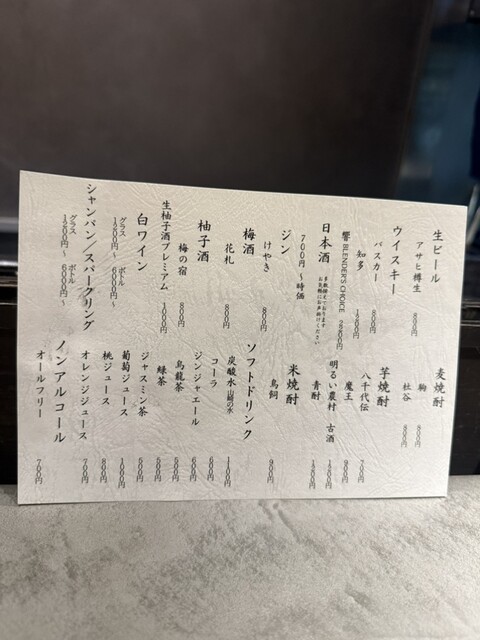 生ビール
アサヒ樽生 800円
ウイスキー
バスカー 800円
知多 1200円
響 BLENDER'S CHOICE
日本酒
700円〜時価
多数揃えております
お気軽にお声掛けください
ジン
けやき 800円
梅酒
花札 800円
柚子酒
梅の宿 800円
生柚子酒プレミアム 1000円
白ワイン
グラス ボトル
1200円〜 6000円〜
シャンパン/スパークリング
グラス ボトル
1200円〜 6000円〜
麦焼酎
駒 800円
杜谷 800円
芋焼酎
八千代伝 700円
魔王 900円
明るい農村 古酒
青酎
米焼酎
鳥飼 900円
ソフトドリンク
炭酸水 山崎の水
コーラ
ジンジャエール
烏龍茶 500円
緑茶 500円
ジャスミン茶 500円
葡萄ジュース 1000円
桃ジュース 800円
オレンジジュース 700円
ノンアルコール
オールフリー 700円